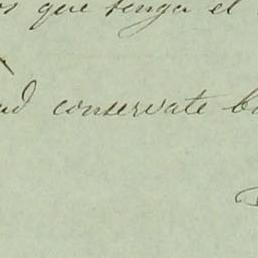 que tenga el
conservate